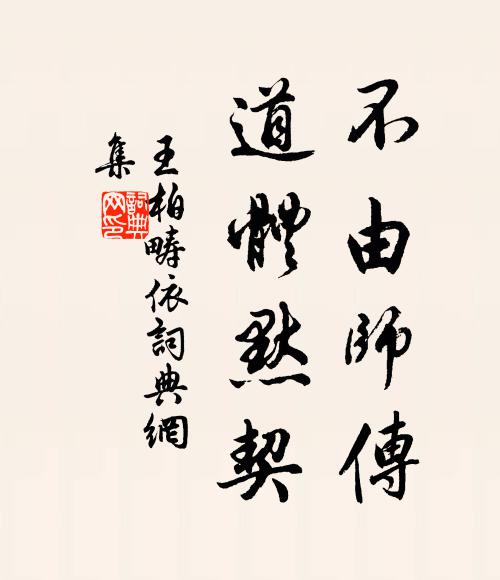 不由師傳
道體默契
王柏疇依詞典網
集
詞典網印